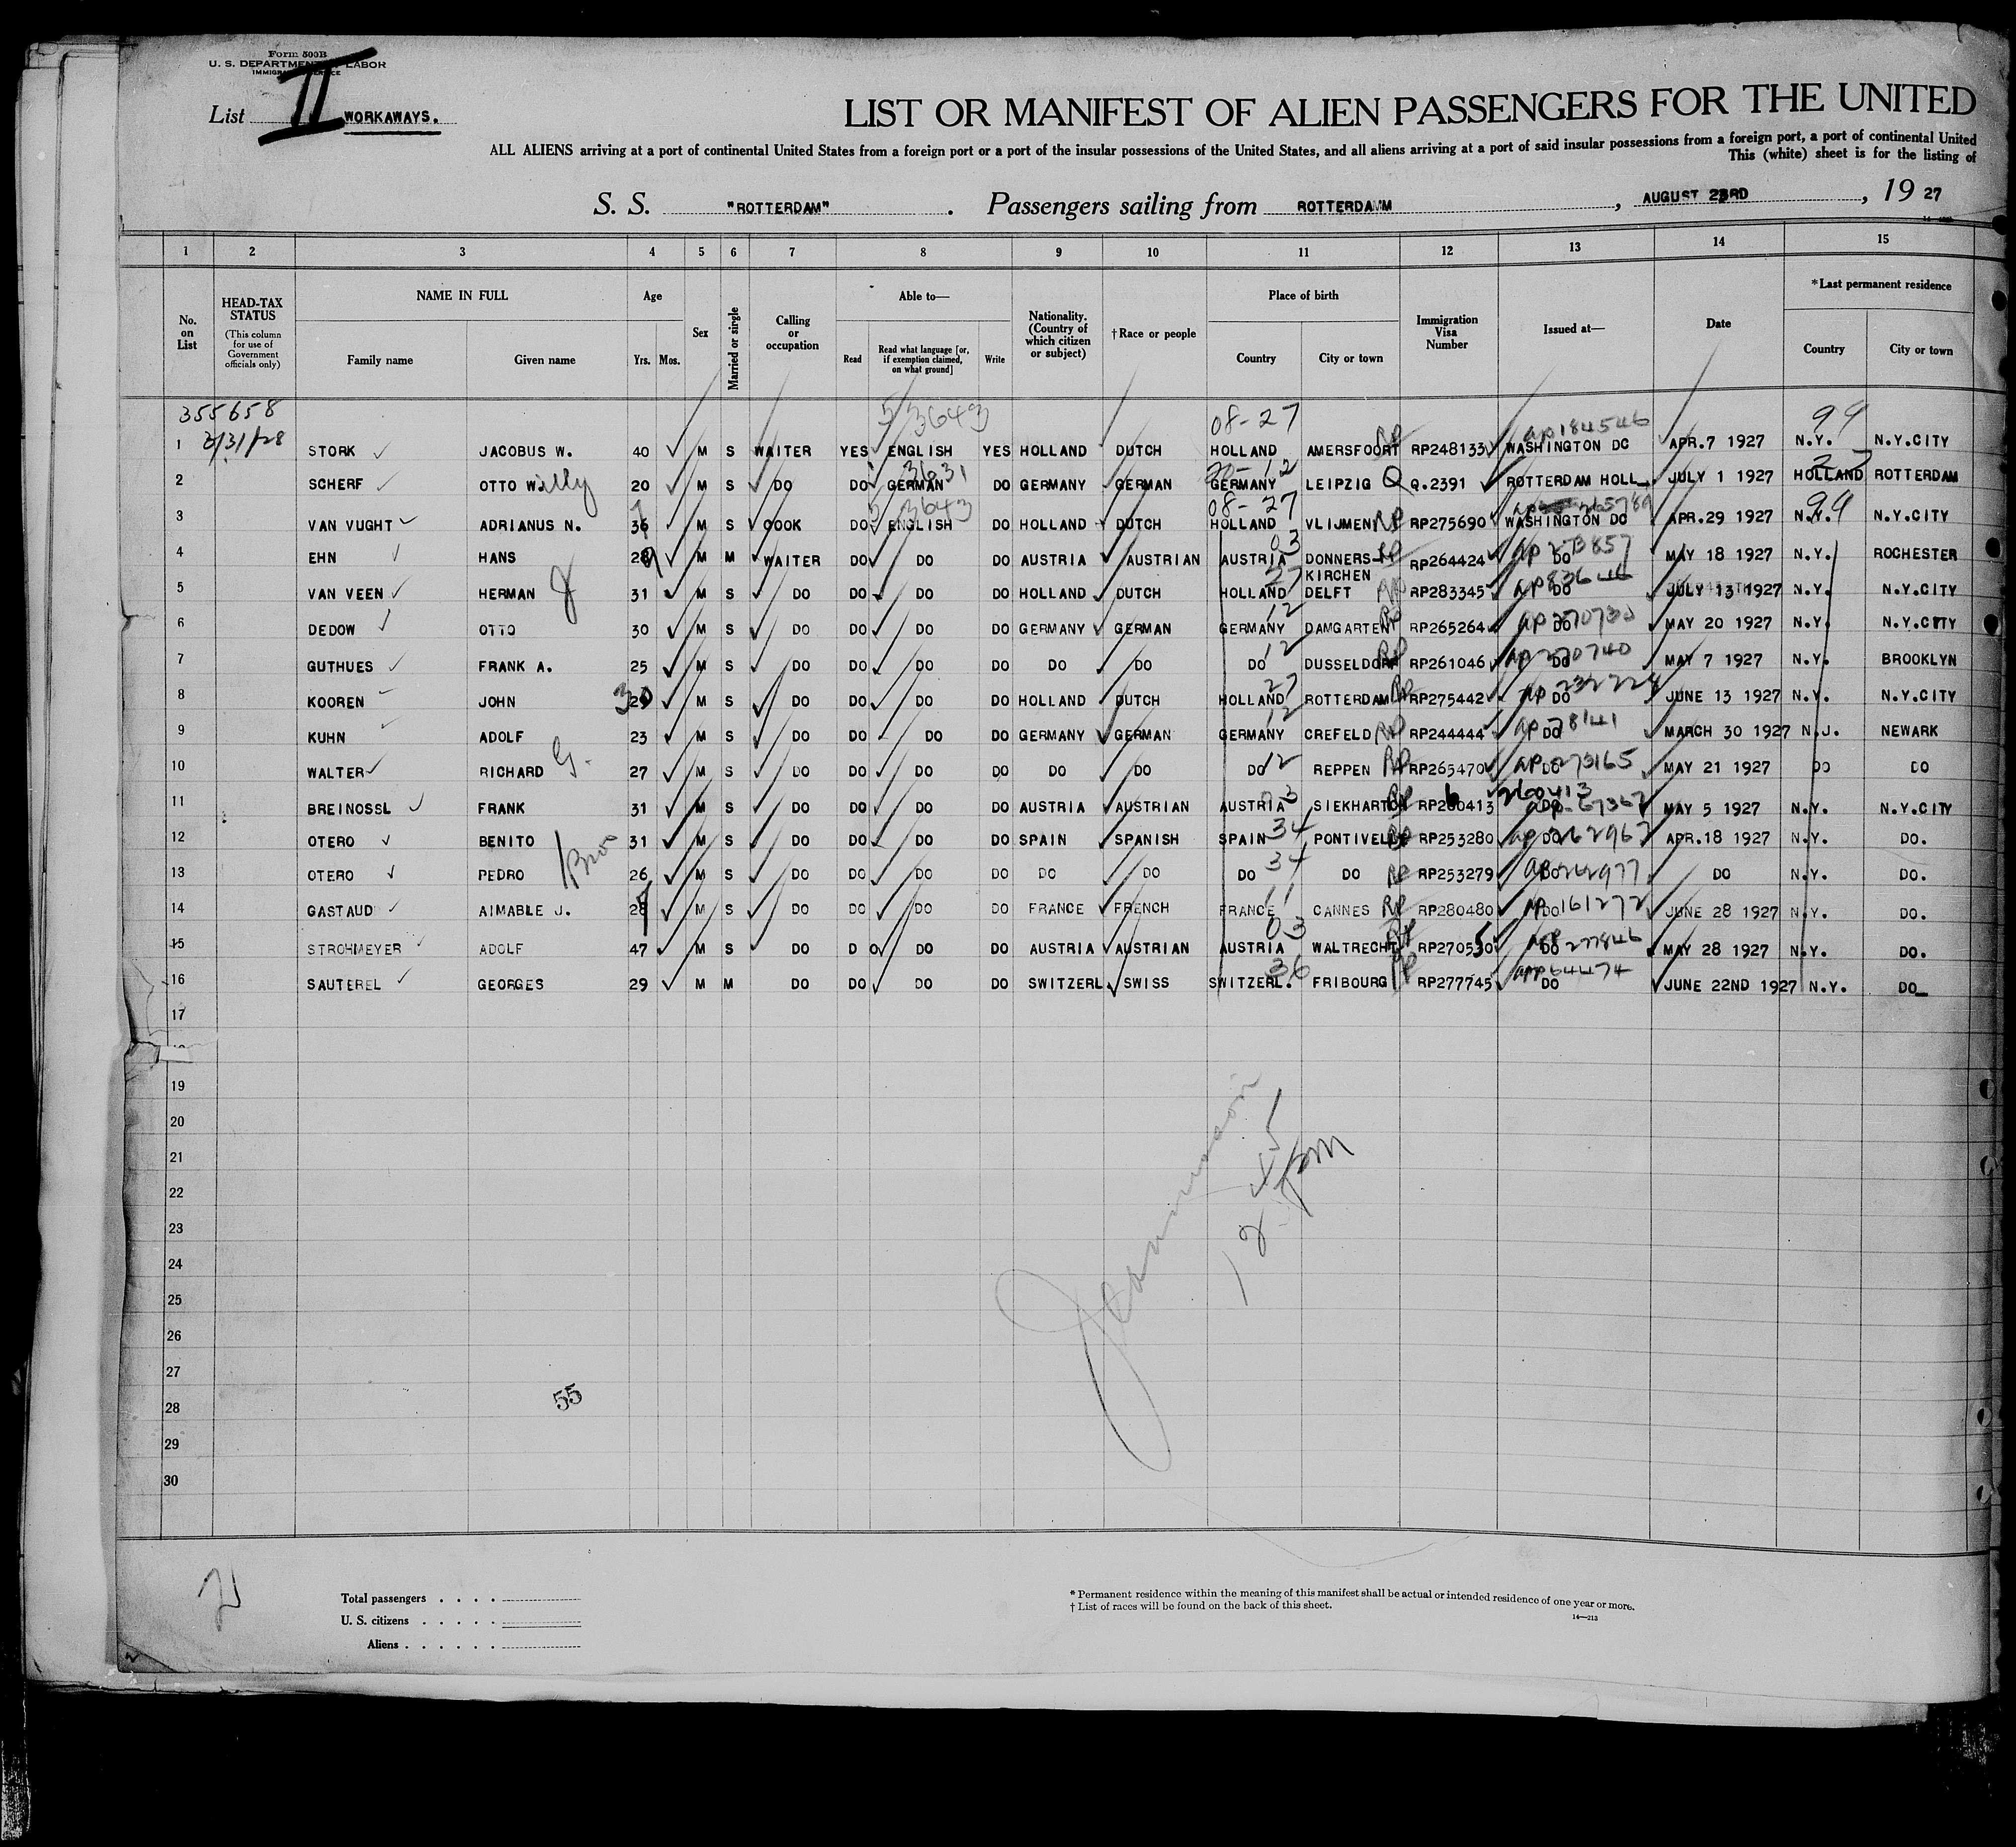 Form 500B
U. S. DEPARTMENT LABOR
List II WORKAWAYS.
LIST OR MANIFEST OF ALIEN PASSENGERS FOR THE UNITED
ALL ALIENS arriving at a port of continental United States from a foreign port or a port of the insular possessions of the United States, and all aliens arriving at a port of said insular possessions from a foreign port, a port of continental United
This (white) sheet is for the listing of
S. S. "ROTTERDAM" . Passengers sailing from ROTTERDAM , AUGUST 23RD , 19 27
1 2 3 4 5 6 7 8 9 10 11 12 13 14 15
No. on List
HEAD-TAX STATUS (This column for use of Government officials only)
NAME IN FULL Family name Given name
Age Yrs. Mos.
Sex
Married or single
Calling or occupation
Able to— Read Read what language [or, if exemption claimed, on what ground] Write
Nationality. (Country of which citizen or subject)
†Race or people
Place of birth Country City or town
Immigration Visa Number
Issued at—
Date
*Last permanent residence Country City or town
355658 53643 08-27 ap184546 99
1 3/31/28 STORK JACOBUS W. 40 M S WAITER YES ENGLISH YES HOLLAND DUTCH HOLLAND AMERSFOORT RP RP248133 WASHINGTON DC APR.7 1927 N.Y. N.Y.CITY
2 SCHERF OTTO Willy 20 M S DO DO GERMAN DO GERMANY GERMAN GERMANY LEIPZIG Q Q.2391 ROTTERDAM HOLL JULY 1 1927 HOLLAND ROTTERDAM
53643 08-27 99
3 VAN VUGHT ADRIANUS N. 36 M S COOK DO ENGLISH DO HOLLAND DUTCH HOLLAND VLIJMEN RP RP275690 WASHINGTON DC APR.29 1927 N.Y. N.Y.CITY
4 EHN HANS 28 9 M M WAITER DO DO DO AUSTRIA AUSTRIAN AUSTRIA 03 DONNERS-KIRCHEN RP RP264424 DO ap273857 MAY 18 1927 N.Y. ROCHESTER
5 VAN VEEN HERMAN J 31 M S DO DO DO DO HOLLAND DUTCH HOLLAND 27 DELFT RP RP283345 DO ap83646 JULY 13 1927 N.Y. N.Y.CITY
6 DEDOW OTTO 30 M S DO DO DO DO GERMANY GERMAN GERMANY 12 DAMGARTEN RP RP265264 DO ap270730 MAY 20 1927 N.Y. N.Y.CITY
7 GUTHUES FRANK A. 25 M S DO DO DO DO DO DO DO 12 DUSSELDORF RP RP261046 DO ap270740 MAY 7 1927 N.Y. BROOKLYN
8 KOOREN JOHN 29 30 M S DO DO DO DO HOLLAND DUTCH HOLLAND 27 ROTTERDAM RP RP275442 DO ap232224 JUNE 13 1927 N.Y. N.Y.CITY
9 KUHN ADOLF 23 M S DO DO DO DO GERMANY GERMAN GERMANY 12 CREFELD RP RP244444 DO ap78141 MARCH 30 1927 N.J. NEWARK
10 WALTER RICHARD G. 27 M S DO DO DO DO DO DO DO 12 REPPEN RP RP265470 DO ap273165 MAY 21 1927 DO DO
11 BREINOSSL FRANK 31 M S DO DO DO DO AUSTRIA AUSTRIAN AUSTRIA 03 SIEKHARTON RP RP260413 260413 DO MAY 5 1927 N.Y. N.Y.CITY
12 OTERO BENITO 31 M S DO DO DO DO SPAIN SPANISH SPAIN 34 PONTIVELLE RP RP253280 DO ap262962 APR.18 1927 N.Y. DO.
13 OTERO PEDRO Bros 26 M S DO DO DO DO DO DO DO 34 DO RP RP253279 DO ap262977 DO N.Y. DO.
14 GASTAUD AIMABLE J. 28 M S DO DO DO DO FRANCE FRENCH FRANCE 11 CANNES RP RP280480 DO ap161272 JUNE 28 1927 N.Y. DO.
15 STROHMEYER ADOLF 47 M S DO DO DO DO AUSTRIA AUSTRIAN AUSTRIA 03 WALTRECHT RP RP270530 DO ap277846 MAY 28 1927 N.Y. DO.
16 SAUTEREL GEORGES 29 M M DO DO DO DO SWITZERL SWISS SWITZERL. 36 FRIBOURG RP RP277745 DO app64474 JUNE 22ND 1927 N.Y. DO
17
19
20
21
22
23
24
25
26
27
28
29
30
55
12 45 pm
Total passengers . . . .
U. S. citizens . . . . .
Aliens . . . . . .
* Permanent residence within the meaning of this manifest shall be actual or intended residence of one year or more.
† List of races will be found on the back of this sheet.
14—213